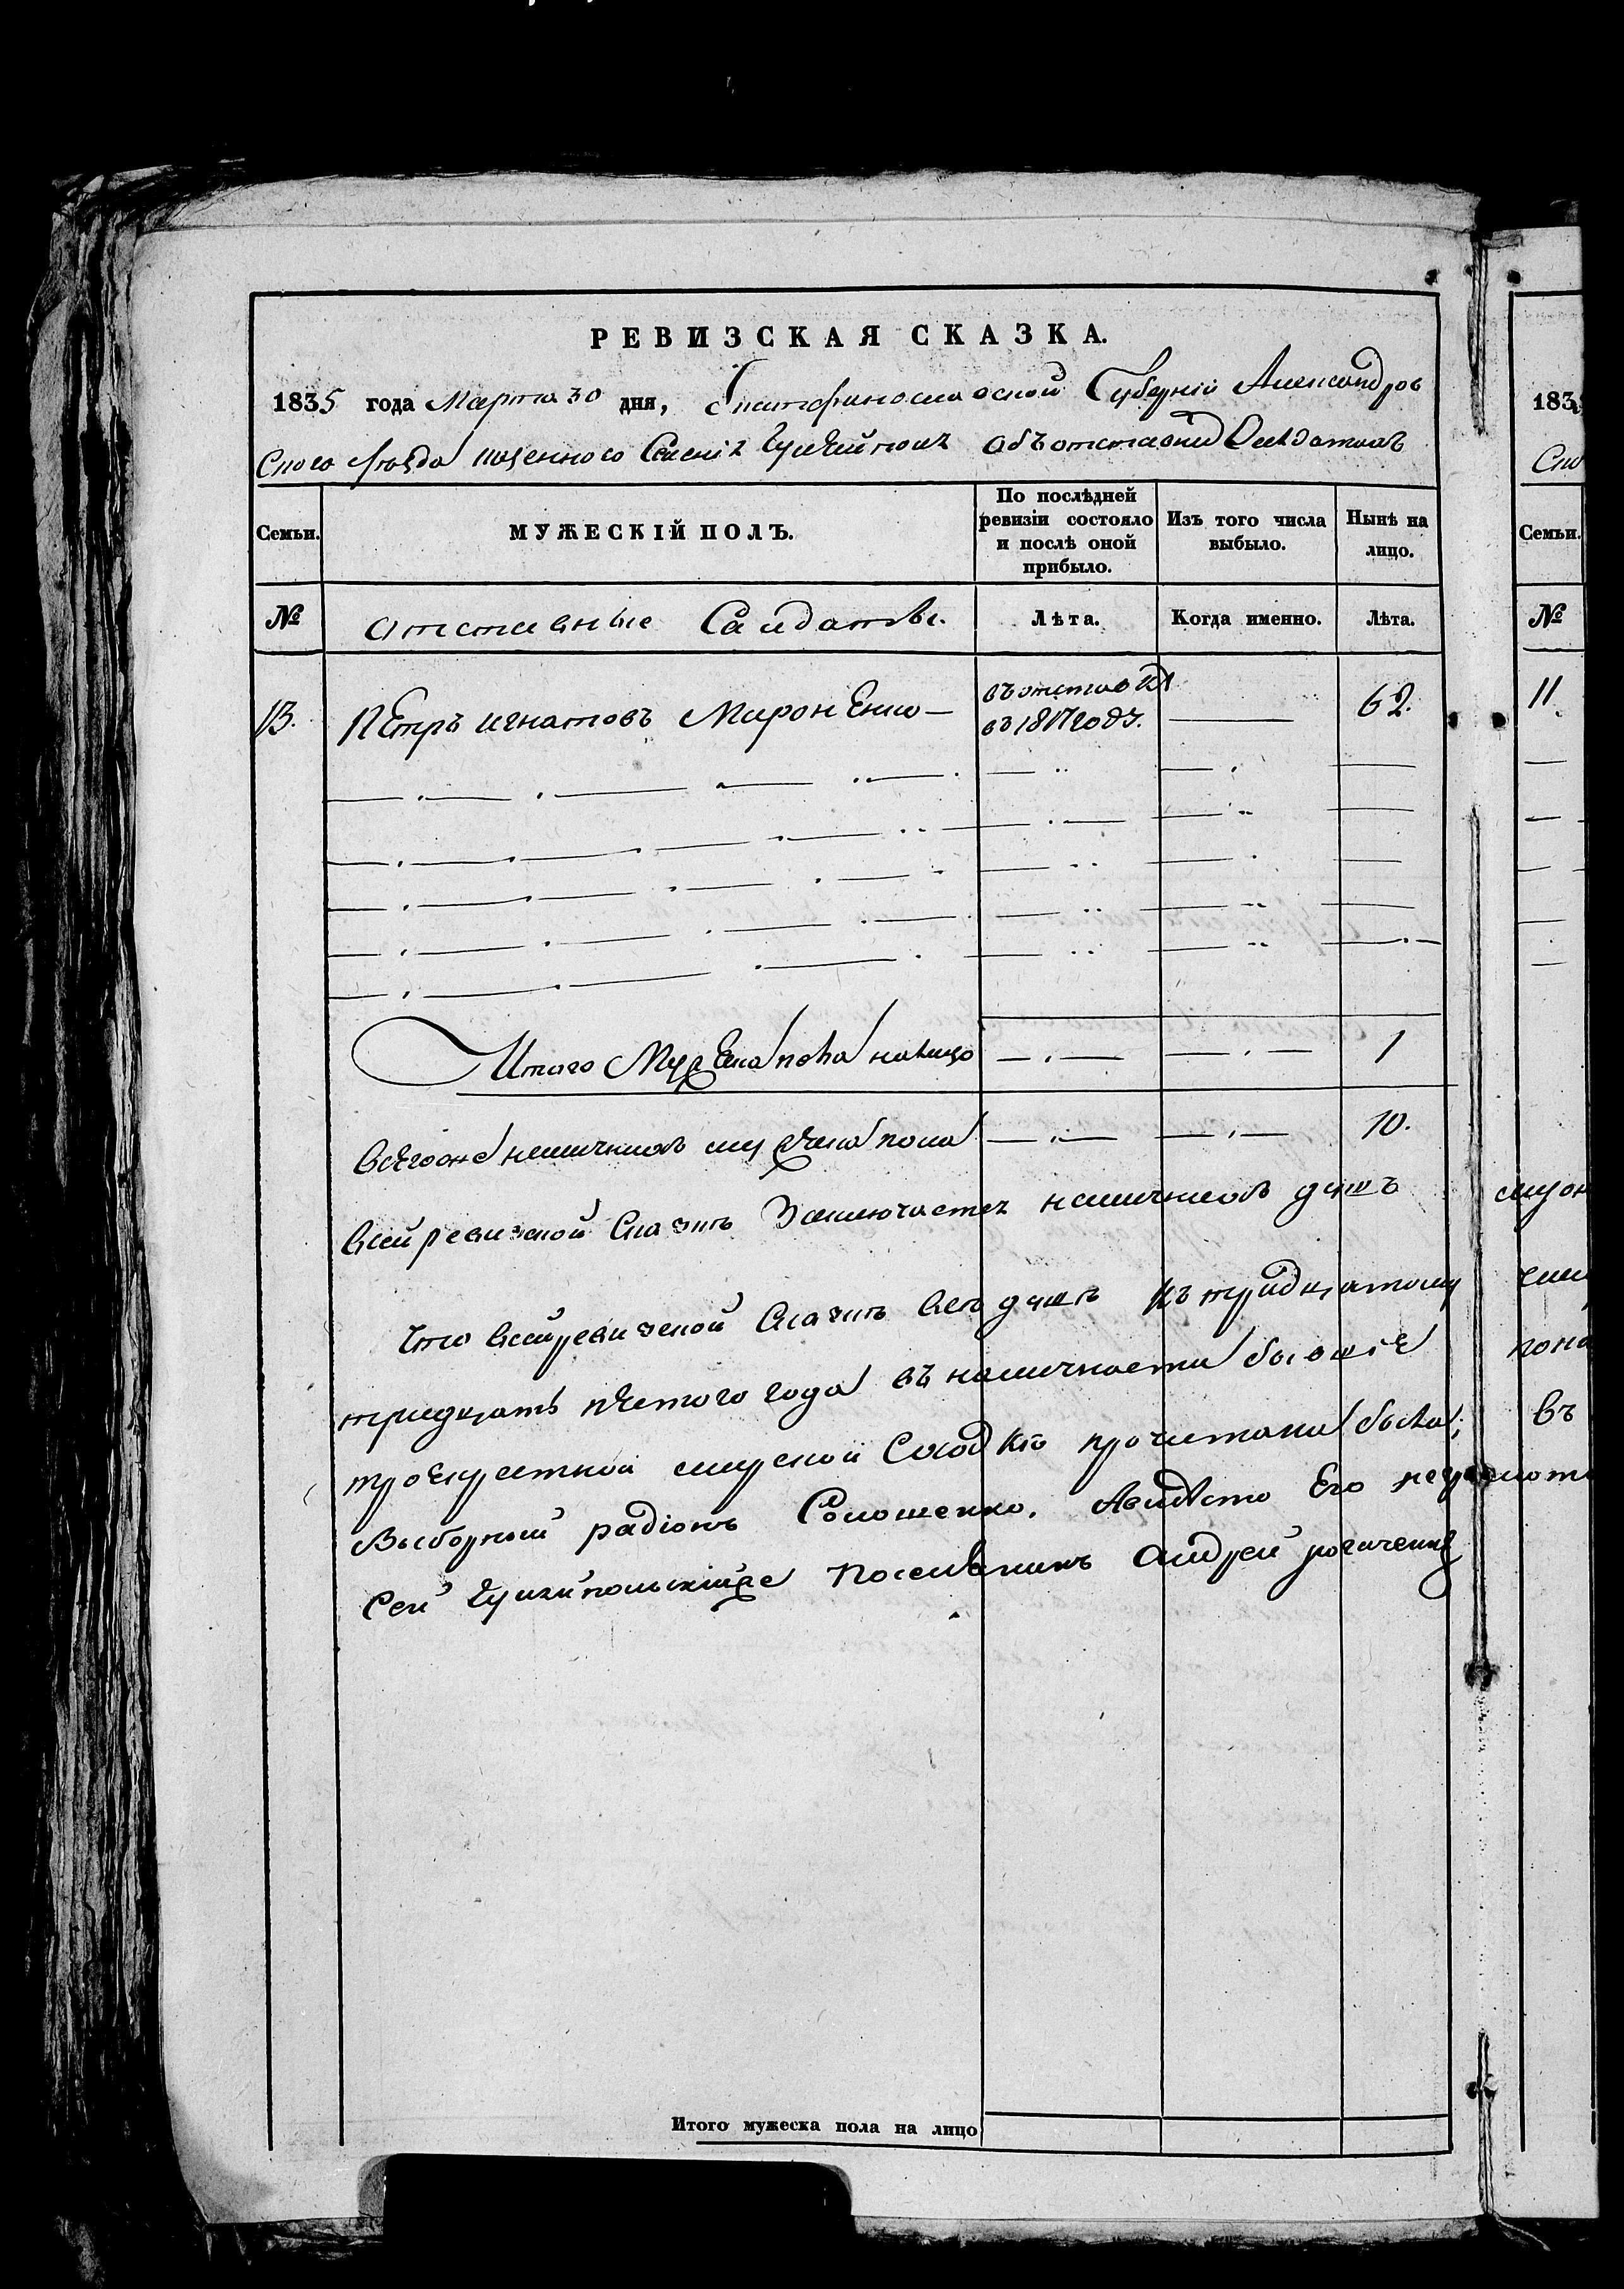 РЕВИЗСКАЯ СКАЗКА.
1835 года Марта 30 дня, Екатеринославской Губерніи Александров
Скаго уезда казенного Селенія Гуляйполя объ отставных Солдатахъ
Семьи.
МУЖЕСКІЙ ПОЛЪ.
По послѣдней ревизіи состояло и послѣ оной прибыло.
Изъ того числа выбыло.
Нынѣ на лицо.
№
отставные Салдаты.
Лѣта.
Когда именно.
Лѣта.
13.
Петръ игнатовъ Мироненко
въ отставки
въ 1817 году.
62.
Итого Мужеска пола налицо
1
Всегоже наличныхъ мужеска пола
10.
Всей ревизской Сказкѣ Заключается наличныхъ душъ
Что всей ревизской Сказкѣ всѣ душъ къ тридцатому
тридцать пятого года въ наличности бывшіе
троекратной мирской Сходкѣ прочитана была;
Выборный радіонъ Солошенко. Авмѣсто Его неграмот
Сей Гуляйпольскійже Поселянинъ Андрей
Итого мужеска пола на лицо
183
Ско
Семьи.
№
11.
въ